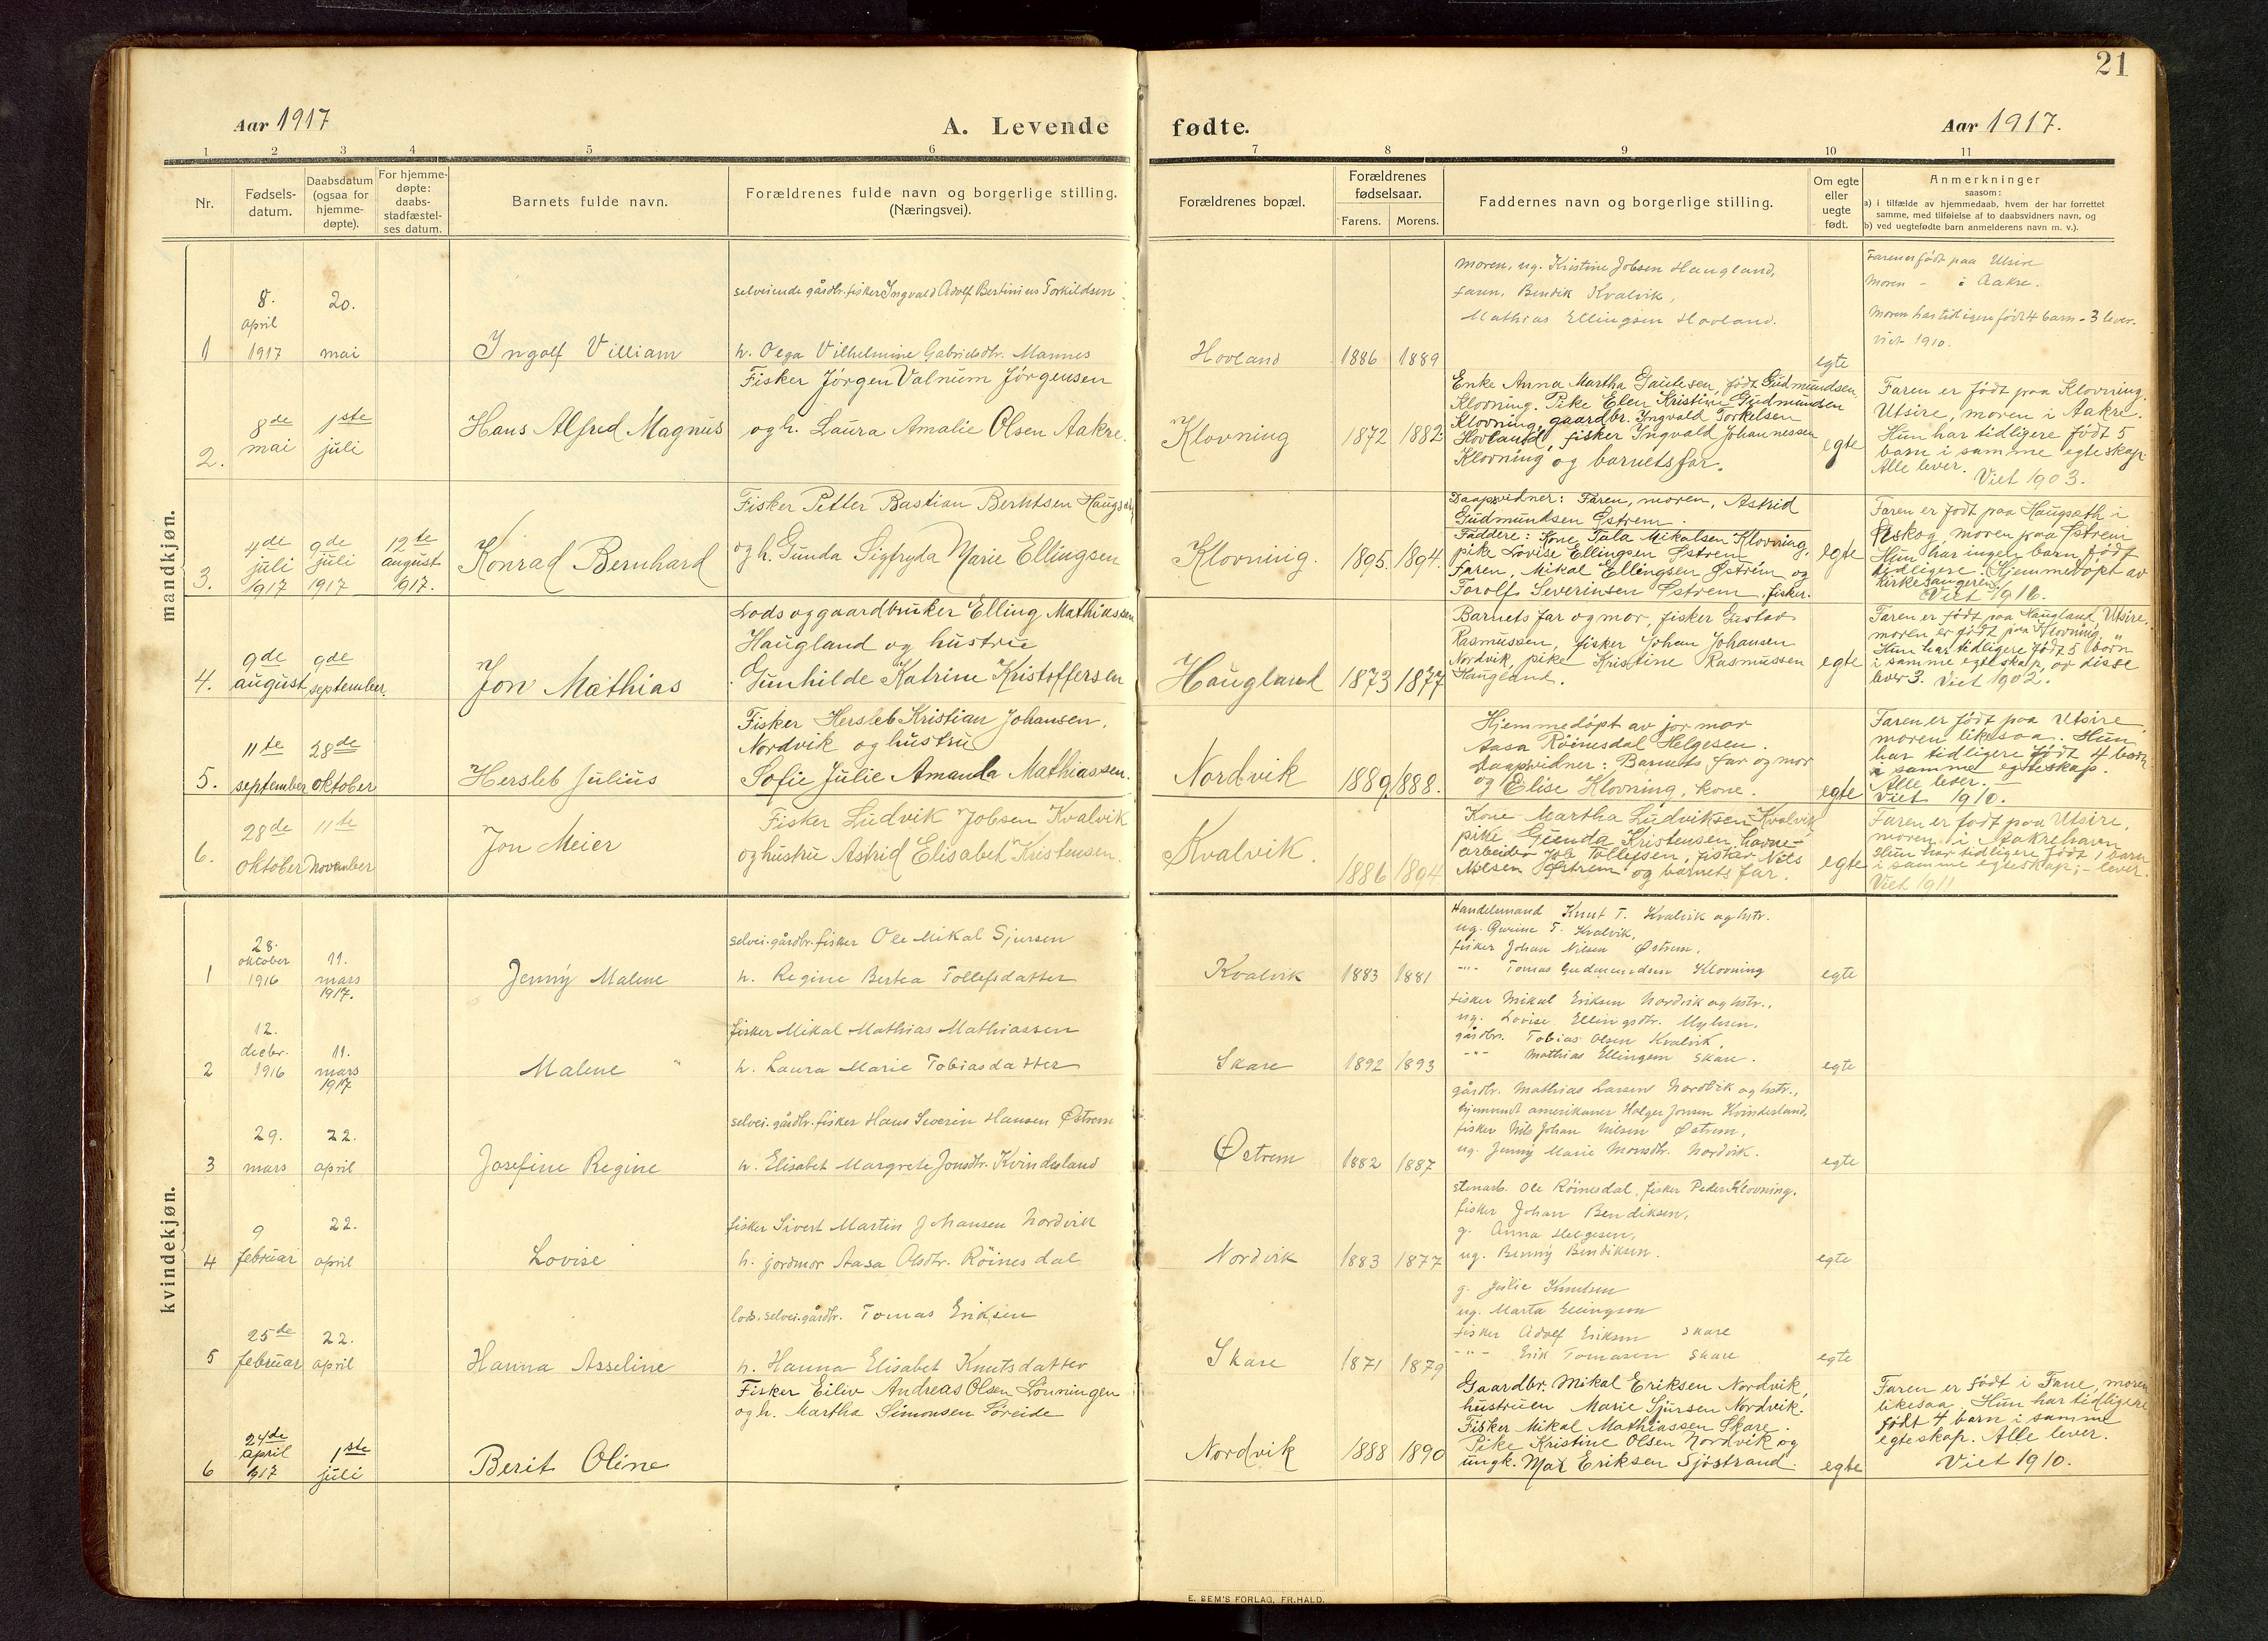 21
Aar 1917
A. Levende fødte.
Aar 1917.
1 2 3 4 5 6 7 8 9 10 11
Nr.
Fødsels-
datum.
Daabsdatum
(ogsaa for
hjemme-
døpte).
For hjemme-
døpte:
daabs-
stadfæstel-
ses datum.
Barnets fulde navn.
Forældrenes fulde navn og borgerlige stilling.
(Næringsvei).
Forældrenes bopæl.
Forældrenes
fødselsaar.
Farens. Morens.
Faddernes navn og borgerlige stilling.
Om egte
eller
uegte
født.
Anmerkninger
saasom:
a) i tilfælde av hjemmedaab, hvem der har forrettet
samme, med tilføielse af to daabsvidners navn, og
b) ved uegtefødte barn anmelderens navn m. v.).
mandkjøn.
1
8.
april
1917
20.
mai
Ingolf Villiam
selveiende gårdbr. fisker Ingvald Adolf Bertinius Torkildsen
h. Olga Vilhelmine Gabrielsdtr. Mannes
Hovland
1886 1889
Moren, ug. Kristine Jobsen Haugland,
faren, Bendik Kvalvik,
Mathias Ellingsen Hovland.
egte
Faren er født paa Utsire
Moren - i Aakre.
Moren har tidligere født 4 barn - 3 lever.
viet 1910.
2.
8de
mai
1ste
juli
Hans Alfred Magnus
Fisker Jørgen Valnum Jørgensen
og h. Laura Amalie Olsen Aakre.
Klovning
1872 1882
Enke Anna Martha Gautesen, født Gudmundsen,
Klovning. Pike Elen Kristine Gudmundsen
Klovning, gaardbr. Ingvald Torkelsen
Hovland, fisker Ingvald Johannessen
Klovning og barnets far.
egte
Faren er født paa Klovning,
Utsire, moren i Aakre.
Hun har tidligere født 5
barn i samme egteskap.
Alle lever.
Viet 1903.
3.
4de
juli
1917
9de
juli
1917
12te
august
1917.
Konrad Bernhard
Fisker Petter Bastian Berntsen
og h. Gunda Sigfryda Marie Ellingsen
Klovning.
1895. 1894.
Daapsvidner: Faren, moren, Astrid
Gudmundsen Østrem.
Faddere: Kone Tala Mikalsen Klovning,
pike Lovise Ellingsen Østrem
faren, Mikal Ellingsen Østrem og
Torolf Severinsen Østrem, fisker.
egte
Faren er født paa Haugsæth i
moren paa Østrem
Hun har ingen barn født
tidligere. (Hjemmedøpt av
Kirkesangeren)
Viet 1916.
4.
9de
august
9de
september.
Jon Mathias
Lods og gaardbruker Elling Mathiassen
Haugland og hustru
Gunhilde Katrine Kristoffersen
Haugland
1873 1877
Barnets far og mor, fisker Gustav
Rasmussen, fisker Johan Johansen
Nordvik, pike Kristine Rasmussen
Haugland.
egte
Faren er født paa Haugland, Utsire,
moren er født paa Klovning, "
Hun har tidligere født 5 barn
i samme egteskap, av disse
lever 3. Viet 1902.
5.
11te
september
28de
oktober
Hersleb Julius
Fisker Hersleb Kristian Johansen,
Nordvik og hustru
Sofie Julie Amanda Mathiassen.
Nordvik
1889 1888.
Hjemmedøpt av jormor
Aasa Röinesdal Helgesen.
Daapsvidner: Barnets far og mor
og Elise Klovning, kone.
egte
Faren er født paa Utsire,
moren likesaa. Hun
har tidligere født 4 barn
i samme egteskap.
Alle lever.
Viet 1910.
6.
28de
oktober
11te
November
Jon Meier
Fisker Ludvik Jobsen Kvalvik
og hustru Astrid Elisabet Kristensen.
Kvalvik.
1886 1894
Kone Martha Ludviksen Kvalvik
pike Gunda Kristensen, havne-
arbeider Job Tollefsen, fisker Nils
Nilsen Østrem og barnets far.
egte
Faren er født paa Utsire,
moren i Aakrehavn
Hun har tidligere født 1 barn
i samme egteskap; - lever.
Viet 1911
kvindekjøn.
1
28.
oktober
1916
11.
mars
1917.
Jenny Malene
selvei. gårdbr. fisker Ole Mikal Sjursen
h. Regine Bertea Tollefsdatter
Kvalvik
1883 1881
Handelsmand Knut T. Kvalvik og hstr.
ug. Gurine T. Kvalvik,
fisker Johan Nilsen Østrem,
-"- Tomas Gudmundsen Klovning
egte
2
12.
decbr.
1916
11.
mars
1917
Malene
fisker Mikal Mathias Mathiassen
h. Laura Marie Tobiasdatter
Skare
1892 1893
fisker Mikal Eriksen Nordvik og hstr.,
ug. Lovise Ellingsdtr.
gårdbr. Tobias Olsen Kvalvik,
-"- Mathias Ellingsen Skare.
egte
3
29.
mars
22.
april
Josefine Regine
selvei. gårdbr. fisker Hans Severin Hansen Østrem
h. Elisabet Margrete Jonsdtr. Kvindesland
Østrem
1882 1887
gårdbr. Mathias Larsen Nordvik og hstr.,
hjemvendt amerikaner Holger Jonsen Kvindesland,
fisker Nils Johan Nilsen Østrem,
ug. Jenny Marie Monsdtr. Nordvik.
egte
4
9
februar
22.
april
Lovise
fisker Sivert Martin Johansen Nordvik
h. jordmor Aasa Olsdtr. Röinesdal
Nordvik
1883 1877
stenarb. Ole Röinesdal, fisker Peder Klovning,
fisker Johan Bendiksen,
g. Anna Helgesen,
ug. Benny Bendiksen.
egte
5
25de
februar
22.
april
Hanna Asseline
lods. selvei. gårdbr. Tomas Eriksen
h. Hanna Elisabet Knutsdatter
Skare
1871 1879
g. Julie Knudsen
ug. Marta Ellingsen
fisker Adolf Eriksen Skare
-"- Erik Tomasen Skare
egte
6
24de
april
1917
1ste
juli
Berit Oline
Fisker Eiliv Andreas Olsen Lönningen
og h. Martha Simonsen Söreide
Nordvik
1888 1890
Gaardbr. Mikal Eriksen Nordvik,
hustruen Marie Sjursen Nordvik.
Fisker Mikal Mathiassen Skare.
Pike Kristine Olsen Nordvik og
ungk. Max Eriksen Sjöstrand.
egte
Faren er født i Fane, moren
likesaa. Hun har tidligere
født 4 barn i samme
egteskap. Alle lever.
Viet 1910.
E. SEM'S FORLAG, FR.HALD.